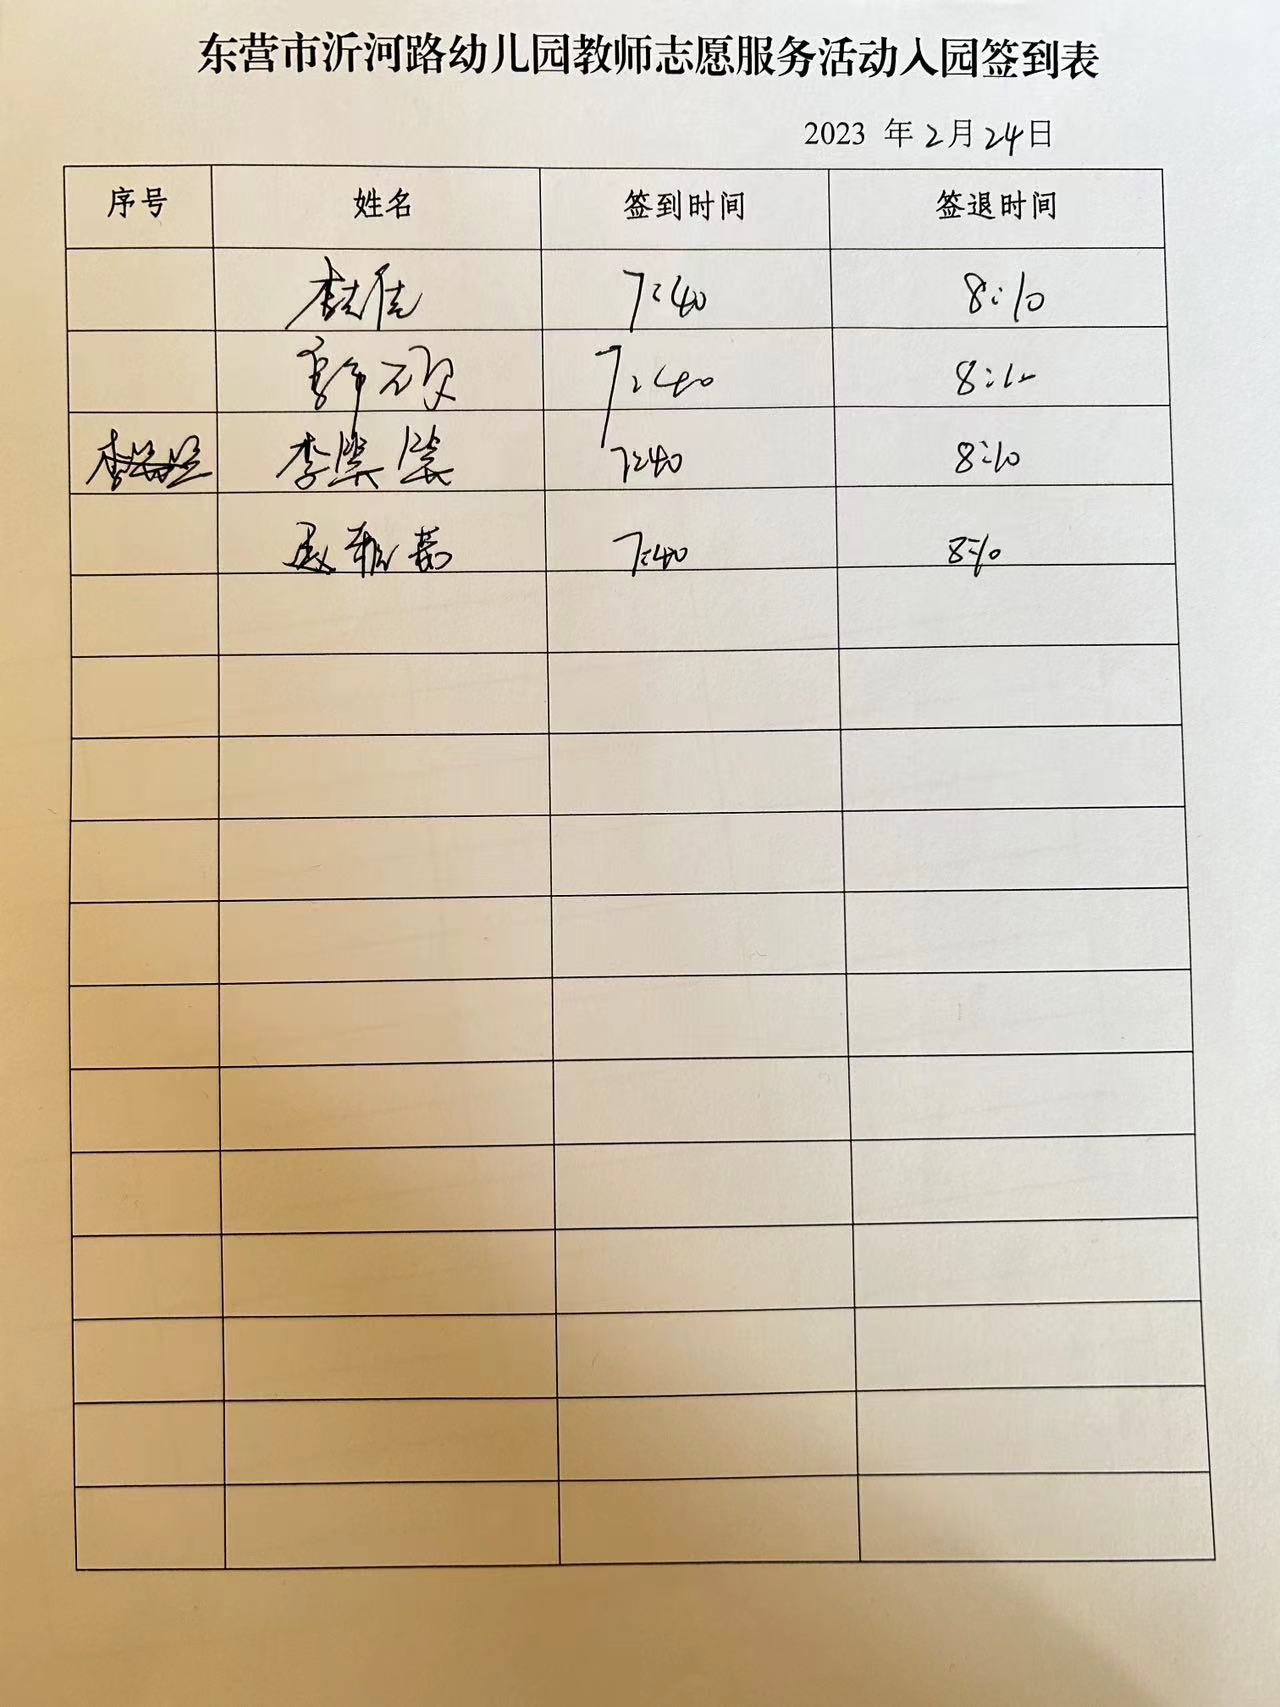 东营市沂河路幼儿园教师志愿服务活动入园签到表
2023 年 2 月 24 日
序号 姓名 签到时间 签退时间
7:40 8:10
7:40 8:10
李 7:40 8:10
7:40 8:10